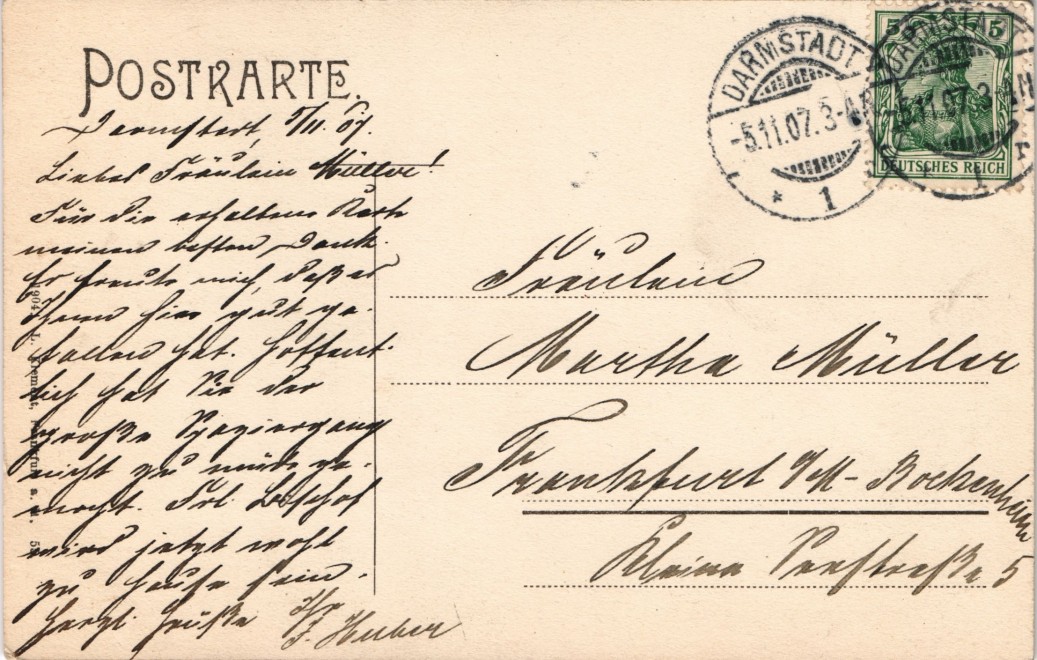 POSTKARTE.
Darmstadt, 5/11.07.
Liebes Fräulein Müller!
Für die erhaltene Karte
meinen besten Dank.
Es freute mich, daß es
Ihnen hier gut ge-
fallen hat. Hoffent-
lich hat Sie der
große Spaziergang
nicht zu müde ge-
macht. Frl. Bischof
wird jetzt wohl
zu Hause sein.
Herzl. Grüße Ihr
J. Huber
DARMSTADT
-5.11.07.3-4
* 1
5 5
DEUTSCHES REICH
DARMSTADT
5.11.07.3-
Fräulein
Martha Müller
Frankfurt a/M - Bockenheim
Kleine Seestraße 5
1904 L.